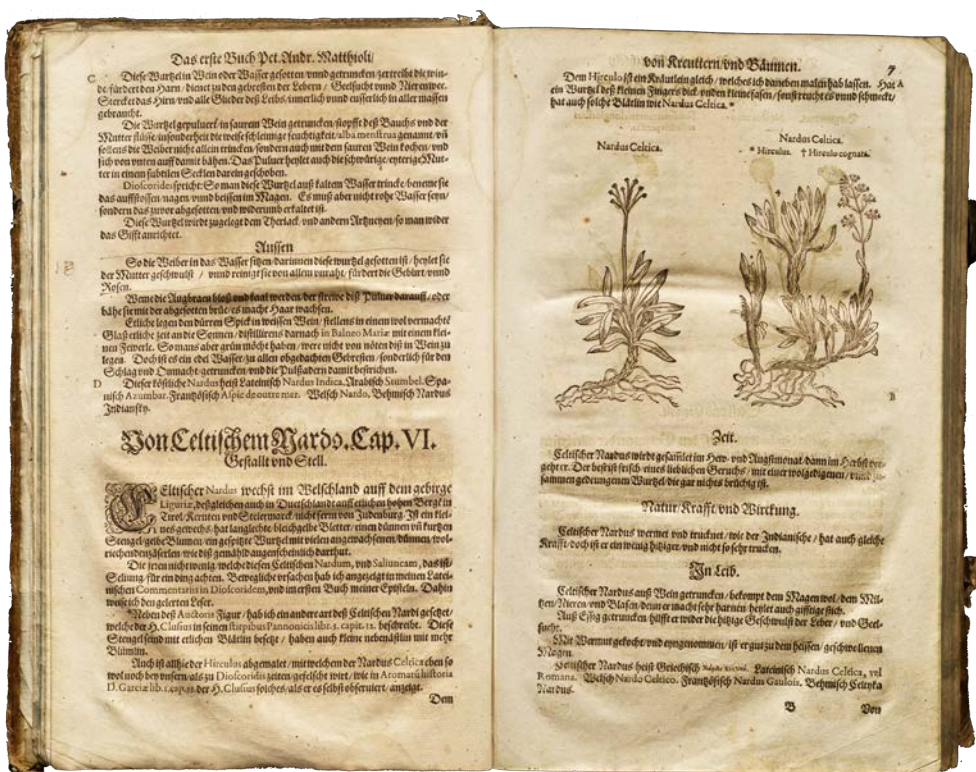 Das erste Buch Pet. Andr. Matthioli/
C
Diese Wurtzel in Wein oder Wasser gesotten/vnnd getruncken/zertreibt die win-
de/fürdert den Harn/dienet zu den gebresten der Lebern/Geelsucht vnnd Nierenwee.
Stercket das Hirn/vnd alle Glieder deß Leibs/innerlich vnnd eusserlich in aller massen
gebraucht.
Die Wurtzel gepuluert/in saurem Wein getruncken/stopfft deß Bauchs vnd der
Mutter flüsse/insonderheit die weisse schleimige feuchtigkeit/alba menstrua genannt/vñ
sollens die Weiber nicht allein trincken/sondern auch mit dem sauren Wein kochen/vnd
sich von vnten auff damit bähen. Das Puluer heylet auch die schwürige/eyterige Mut-
ter in einem subtilen Secklen darein geschoben.
Dioscorides spricht: So man diese Wurtzel auß kaltem Wasser trincke/beneme sie
das auffstossen/nagen/vnd beissen im Magen. Es muß aber nicht rohe Wasser seyn/
sondern das zuvor abgesotten/vnd widerumb erkaltet ist.
Diese Wurtzel wirdt zugelegt dem Theriack/vnd andern Artzneyen/so man wider
das Gifft anrichtet.
Aussen
So die Weiber in das Wasser sitzen/darinnen diese wurtzel gesotten ist/heylet sie
der Mutter geschwulst/vnnd reinigt sie von allem vnraht/fürdert die Geburt/vnnd
Rosen.
Weme die Augbraen bloß vnd kaal werden/der strewe diß Puluer darauff/oder
bähe sie mit der abgesotten brüe/es macht Haar wachsen.
Etliche legen den dürren Spick in weissen Wein/stellens in einem wol vermachtẽ
Glaß etliche zeit an die Sonnen/distillirens darnach in Balneo Mariæ mit einem klei-
nen Fewerle. So mans aber grün möcht haben/were nicht von nöten diß in Wein zu
legen. Doch ist es ein edel Wasser/zu allen obgedachten Gebresten/sonderlich für den
Schlag vnd Onmacht/getruncken/vnd die Pulßadern damit bestrichen.
D
Dieser köstliche Nardus heist Lateinisch Nardus Indica. Arabisch Stumbel. Spa-
nisch Azumbar. Frantzösisch Aspic de outre mar. Welsch Nardo. Behmisch Nardus
Indiansky.
Von Celtischem Nardo. Cap. VI.
Gestallt vnd Stell.
CEltischer Nardus wechst im Welschland auff dem gebirge
Liguriæ, deßgleichen auch in Duetschlandt auff etlichen hohen Berge in
Tirol/Kernten vnd Steiermarck/nicht fern von Judenburg. Ist ein klei-
nes gewechs/hat langlechte bleichgelbe Bletter/einen dünnen vñ kurtzen
Stengel/gelbe Blumen/ein gespitzte Wurtzel mit vielen angewachsenen/dünnen/wol-
riechenden zäserlen/wie diß gemähld augenscheinlich darthut.
Die jrren nicht wenig/welche diesen Celtischen Nardum, vnd Saliuncam, das ist/
Seliung/für ein ding achten. Bewegliche vrsachen hab ich angezeigt in meinen Latei-
nischen Commentariis in Dioscoridem, vnd im ersten Buch meiner Episteln. Dahin
weise ich den gelerten Leser.
*Neben deß Auctoris Figur/hab ich ein andere art deß Celtischen Nardi gesetzet/
welche der H. Clusius in seinen stirpibus Pannonicis libr. 5. capit. 12. beschreibt. Diese
Stengel seind mit etlichen Blätlin besetzt/haben auch kleine nebenästlin mit mehr
Blümlin.
Auch ist allhie der Hirculus abgemalet/mit welchem der Nardus Celtica eben so
wol noch bey vnsern/als zu Dioscoridis zeiten/gefelscht wirt/wie in Aromatũ historia
D. Garciæ lib. 1. cap. 12. der H. Clusius solches/als er es selbst obseruiert/anzeigt.
Dem
von Kreuttern/vnd Bäumen.
7
Dem Hirculo ist ein Kräutlein gleich/welches ich daneben malen hab lassen. Hat
A
ein Wurtzel deß kleinen Fingers dick/vnden kleine fasen/sonst reucht es vnnd schmeckt/
hat auch solche Blätlin wie Nardus Celtica. *
Nardus Celtica.
Nardus Celtica.
* Hirculus. † Hirculo cognata.
B
Zeit.
Celtischer Nardus wirdt gesamlet im Hew- vnd Augstmonat/dann im Herbst ver-
geht er. Der best ist frisch/eines lieblichen Geruchs/mit einer wolgedigenen/vnnd zu-
sammen gedrungenen Wurtzel/die gar nichts brüchig ist.
Natur/Krafft/vnd Wirckung.
Celtischer Nardus wermet vnd trucknet/wie der Indianische/hat auch gleiche
Krafft/doch ist er ein wenig hitziger/vnd nicht so sehr trucken.
In Leib.
Celtischer Nardus auß Wein getruncken/bekompt dem Magen wol/dem Mil-
tzen/Nieren/vnd Blasen/denn er macht sehr harnen/heylet auch gifftige stich.
Auß Essig getruncken hilfft er wider die hitzige Geschwulst der Leber/vnd Geel-
sucht.
Mit Wermut gekocht/vnd eyngenommen/ist er gut zu dem heissen/geschwollenen
Magen.
Celtischer Nardus heist Griechisch Lateinisch Nardus Celtica, vel
Romana. Welsch Nardo Celtico. Frantzösisch Nardus Gaulois. Behmisch Celtyka
Nardus.
B
Von